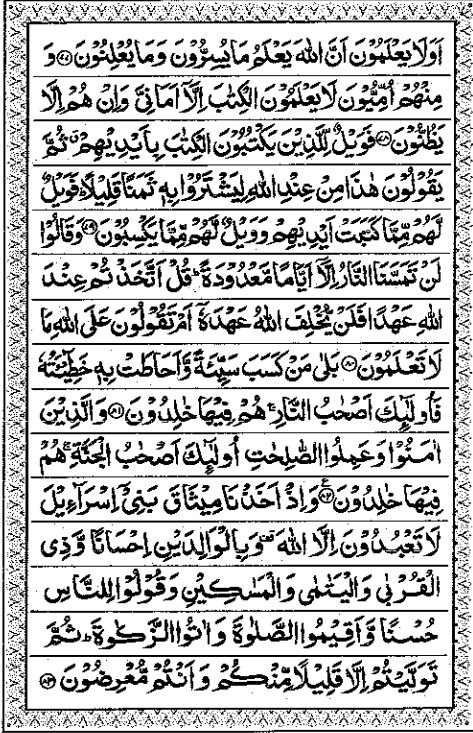 اَوَلَا يَعْلَمُوْنَ اَنَّ اللّٰهَ يَعْلَمُ مَا يُسِرُّوْنَ وَمَا يُعْلِنُوْنَ ۝۷۷ وَ
مِنْهُمْ اُمِّيُّوْنَ لَا يَعْلَمُوْنَ الْكِتٰبَ اِلَّاۤ اَمَانِيَّ وَاِنْ هُمْ اِلَّا
يَظُنُّوْنَ ۝۷۸ فَوَيْلٌ لِّلَّذِيْنَ يَكْتُبُوْنَ الْكِتٰبَ بِاَيْدِيْهِمْ ۗ ثُمَّ
يَقُوْلُوْنَ هٰذَا مِنْ عِنْدِ اللّٰهِ لِيَشْتَرُوْا بِهٖ ثَمَنًا قَلِيْلًا ؕ فَوَيْلٌ
لَّهُمْ مِّمَّا كَتَبَتْ اَيْدِيْهِمْ وَوَيْلٌ لَّهُمْ مِّمَّا يَكْسِبُوْنَ ۝۷۹ وَقَالُوْا
لَنْ تَمَسَّنَا النَّارُ اِلَّاۤ اَيَّامًا مَّعْدُوْدَةً ؕ قُلْ اَتَّخَذْتُمْ عِنْدَ
اللّٰهِ عَهْدًا فَلَنْ يُّخْلِفَ اللّٰهُ عَهْدَهٗۤ اَمْ تَقُوْلُوْنَ عَلَى اللّٰهِ مَا
لَا تَعْلَمُوْنَ ۝۸۰ بَلٰى مَنْ كَسَبَ سَيِّئَةً وَّاَحَاطَتْ بِهٖ خَطِيْٓئَتُهٗ
فَاُولٰٓئِكَ اَصْحٰبُ النَّارِ ۚ هُمْ فِيْهَا خٰلِدُوْنَ ۝۸۱ وَالَّذِيْنَ
اٰمَنُوْا وَعَمِلُوا الصّٰلِحٰتِ اُولٰٓئِكَ اَصْحٰبُ الْجَنَّةِ ۚ هُمْ
فِيْهَا خٰلِدُوْنَ ۝۸۲ؑ وَاِذْ اَخَذْنَا مِيْثَاقَ بَنِيْۤ اِسْرَآءِيْلَ
لَا تَعْبُدُوْنَ اِلَّا اللّٰهَ ۫ وَبِالْوَالِدَيْنِ اِحْسَانًا وَّذِي
الْقُرْبٰى وَالْيَتٰمٰى وَالْمَسٰكِيْنِ وَقُوْلُوْا لِلنَّاسِ
حُسْنًا وَّاَقِيْمُوا الصَّلٰوةَ وَاٰتُوا الزَّكٰوةَ ؕ ثُمَّ
تَوَلَّيْتُمْ اِلَّا قَلِيْلًا مِّنْكُمْ وَاَنْتُمْ مُّعْرِضُوْنَ ۝۸۳